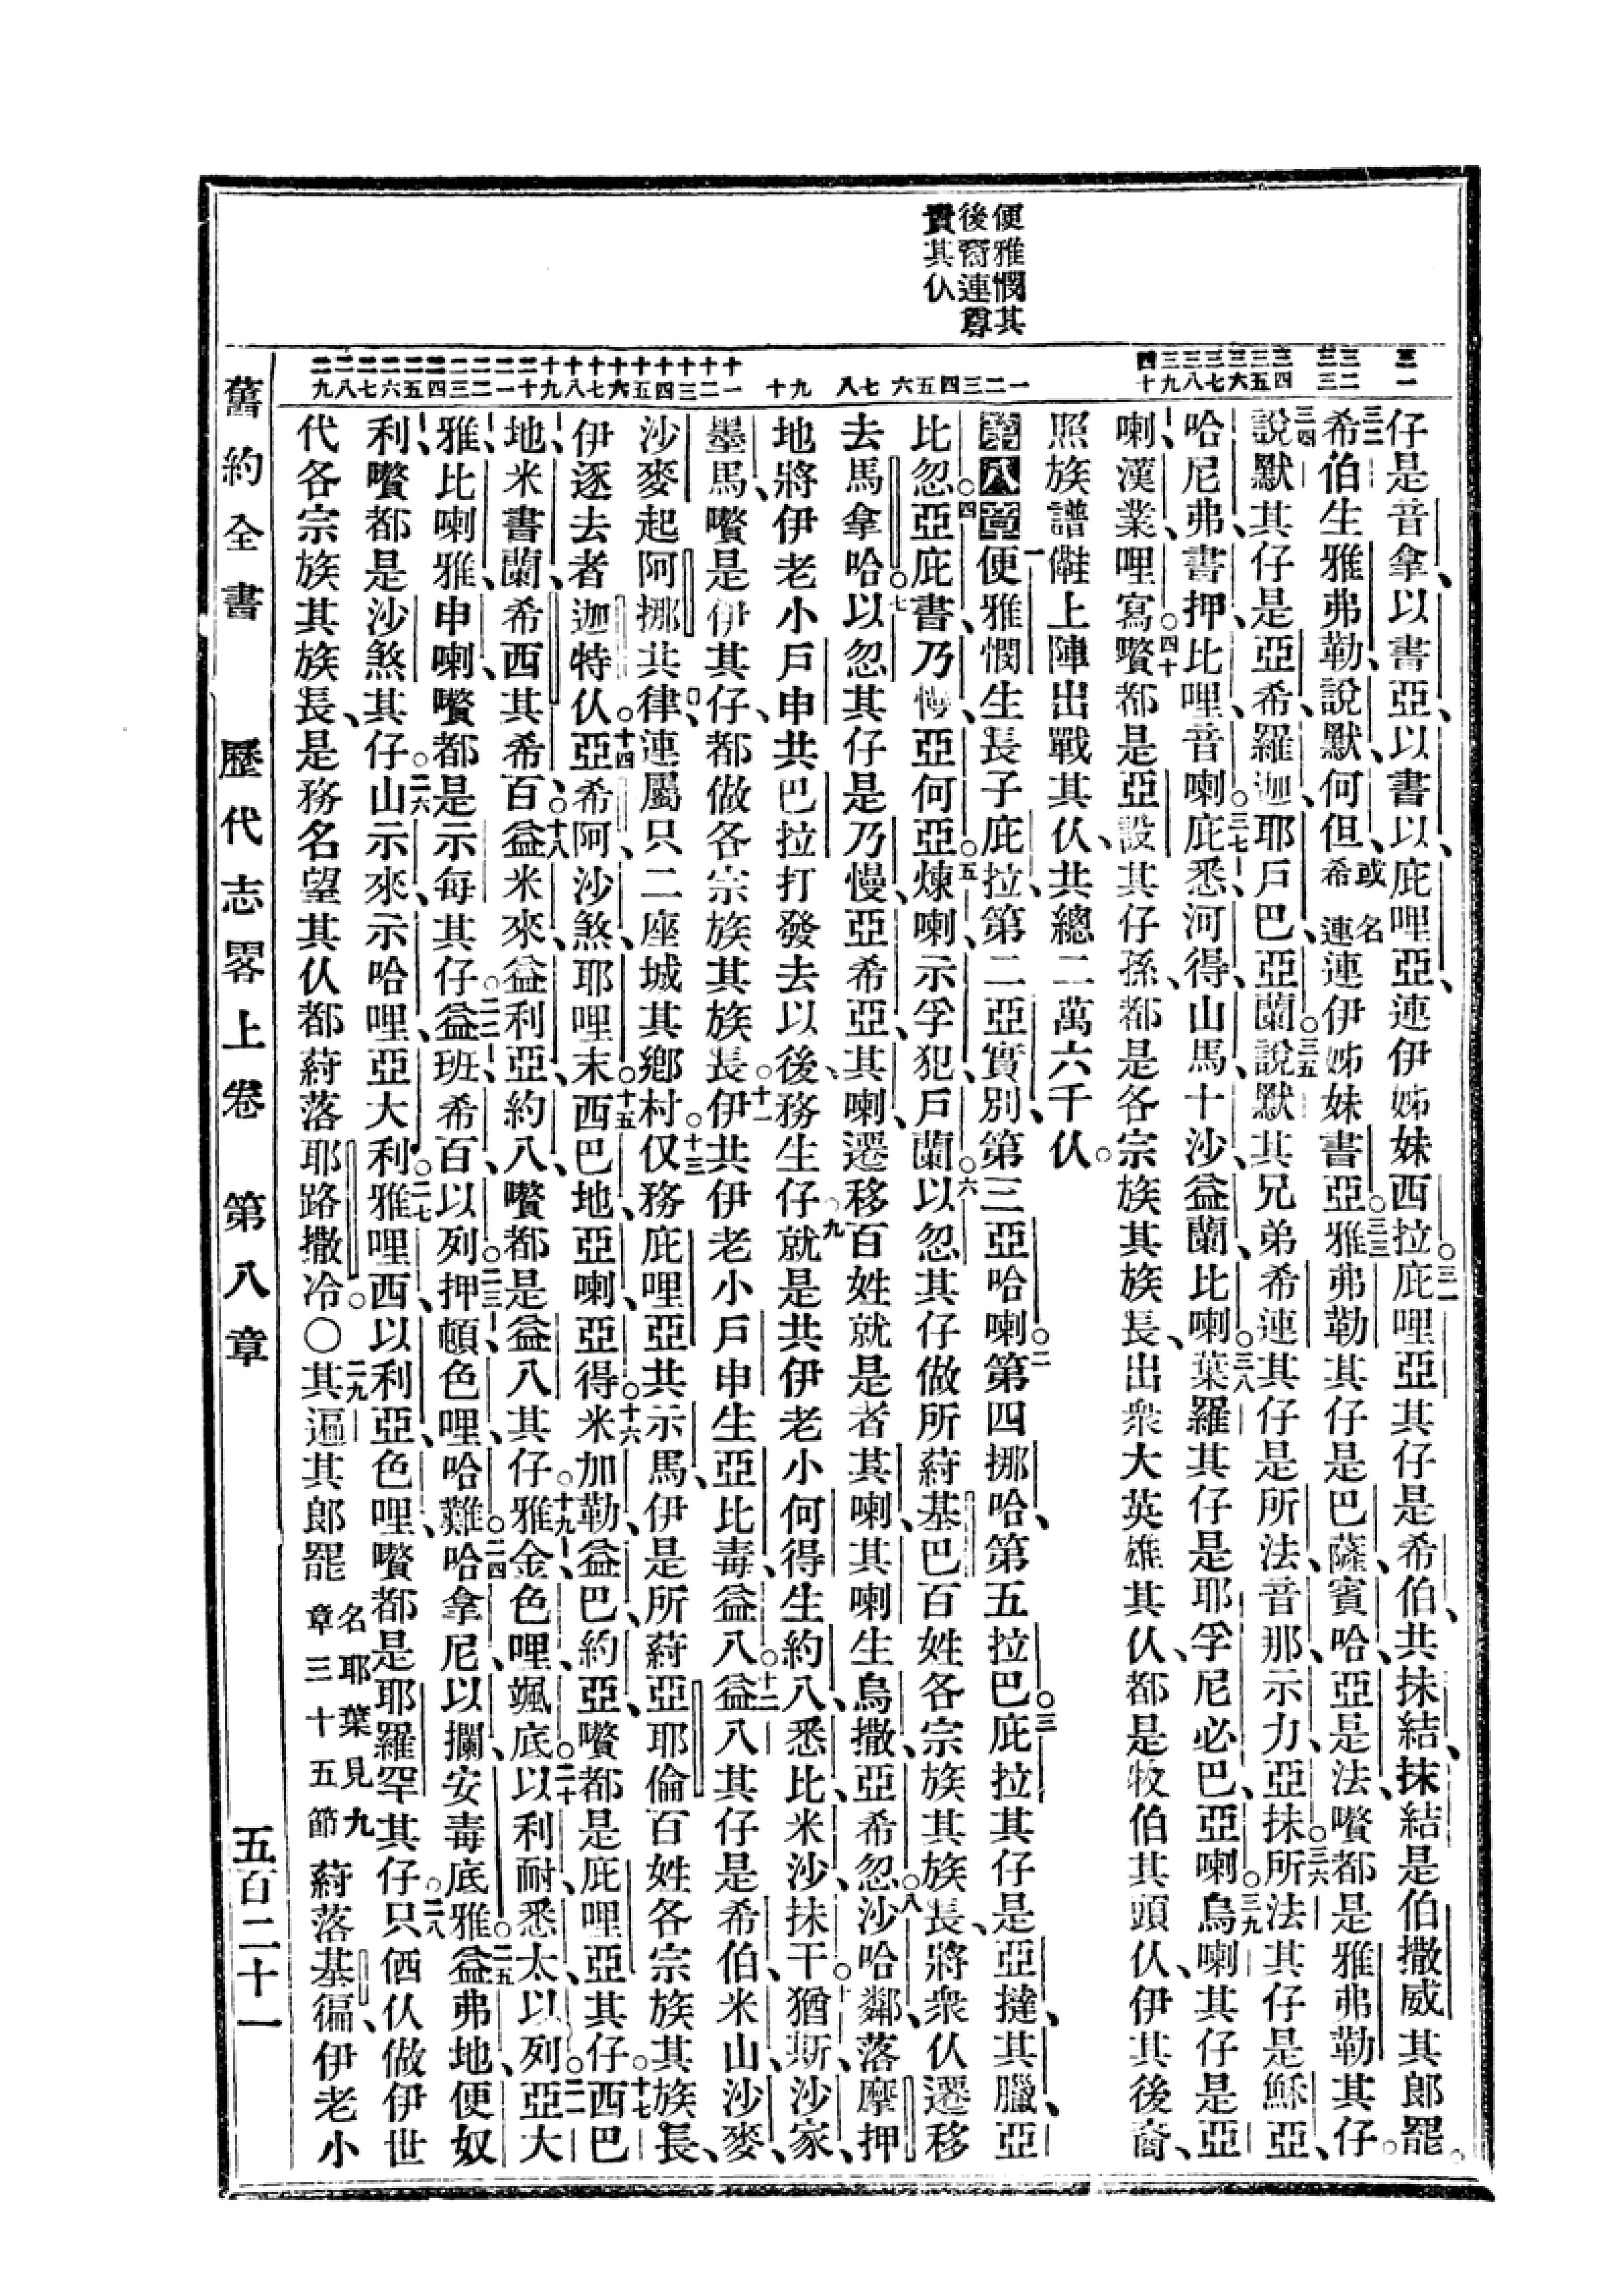 便雅憫其
後裔連尊
貴其仈
仔是音拿以書亞以書以庇哩亞連伊姊妹西拉○三一庇哩亞其仔是希伯共抹結抹結是伯撒威其郎罷。
三二希伯生雅弗勒說默何但或名希連連伊姊妹書亞○三三雅弗勒其仔是巴薩賓哈亞是法嚽都是雅弗勒其仔。
三四說默其仔是亞希羅迦耶戶巴亞蘭○三五說默其兄弟希連其仔是所法音那示力亞抹○三六所法其仔是穌亞、
哈尼弗書押比哩音喇○三七庇悉河得山馬十沙益蘭比喇○三八葉羅其仔是耶孚尼必巴亞喇○三九烏喇其仔是亞
喇漢業哩寫○四十嚽都是亞設其仔孫、都是各宗族其族長、出衆大英雄其仈、都是牧伯其頭仈、伊其後裔、
照族譜𠆧上陣出戰其仈、共總二萬六千仈。
第八章一便雅憫生長子庇拉第二亞實別第三亞哈喇○二第四挪哈第五拉巴○三庇拉其仔是亞撻其臘亞
比忽○四亞庇書乃慢亞何亞○五煉喇示孚犯戶蘭○六以忽其仔做所葤基巴百姓各宗族其族長、將衆仈遷移
去馬拿哈○七以忽其仔是乃慢亞希亞其喇遷移百姓就是者其喇其喇生烏撒亞希忽○八沙哈鄰落摩押
地將伊老小戶申共巴拉打發去以後、務生仔○九就是共伊老小何得生約八悉比米沙抹干○十猶斯沙家
墨馬嚽是伊其仔、都做各宗族其族長○十一伊共伊老小戶申生亞比毒益八○十二益八其仔是希伯米山沙麥
沙麥起阿挪共律連屬只二座城其鄉村○十三仅務庇哩亞共示馬伊是所葤亞耶倫百姓各宗族其族長、
伊逐去者迦特仈○十四亞希阿沙煞耶哩末○十五西巴地亞喇亞得○十六米加勒益巴約亞嚽都是庇哩亞其仔○十七西巴
地米書蘭希西其希百○十八益米來益利亞約八嚽都是益八其仔○十九雅金色哩颯底○二十以利耐悉太以列○二一亞大
雅比喇雅申喇嚽都是示每其仔○二二益班希百以列○二三押頓色哩哈難○二四哈拿尼以攔安毒底雅○二五益弗地便奴
利嚽都是沙煞其仔○二六山示來示哈哩亞大利○二七雅哩西以利亞色哩嚽都是耶羅罕其仔○二八只価仈做伊世
代各宗族其族長、是務名望其仈都葤落耶路撒冷。〇二九其遍其郎罷名耶葉見九章三十五節葤落基徧、伊老小
舊約全書　歷代志畧上卷　第八章　五百二十一